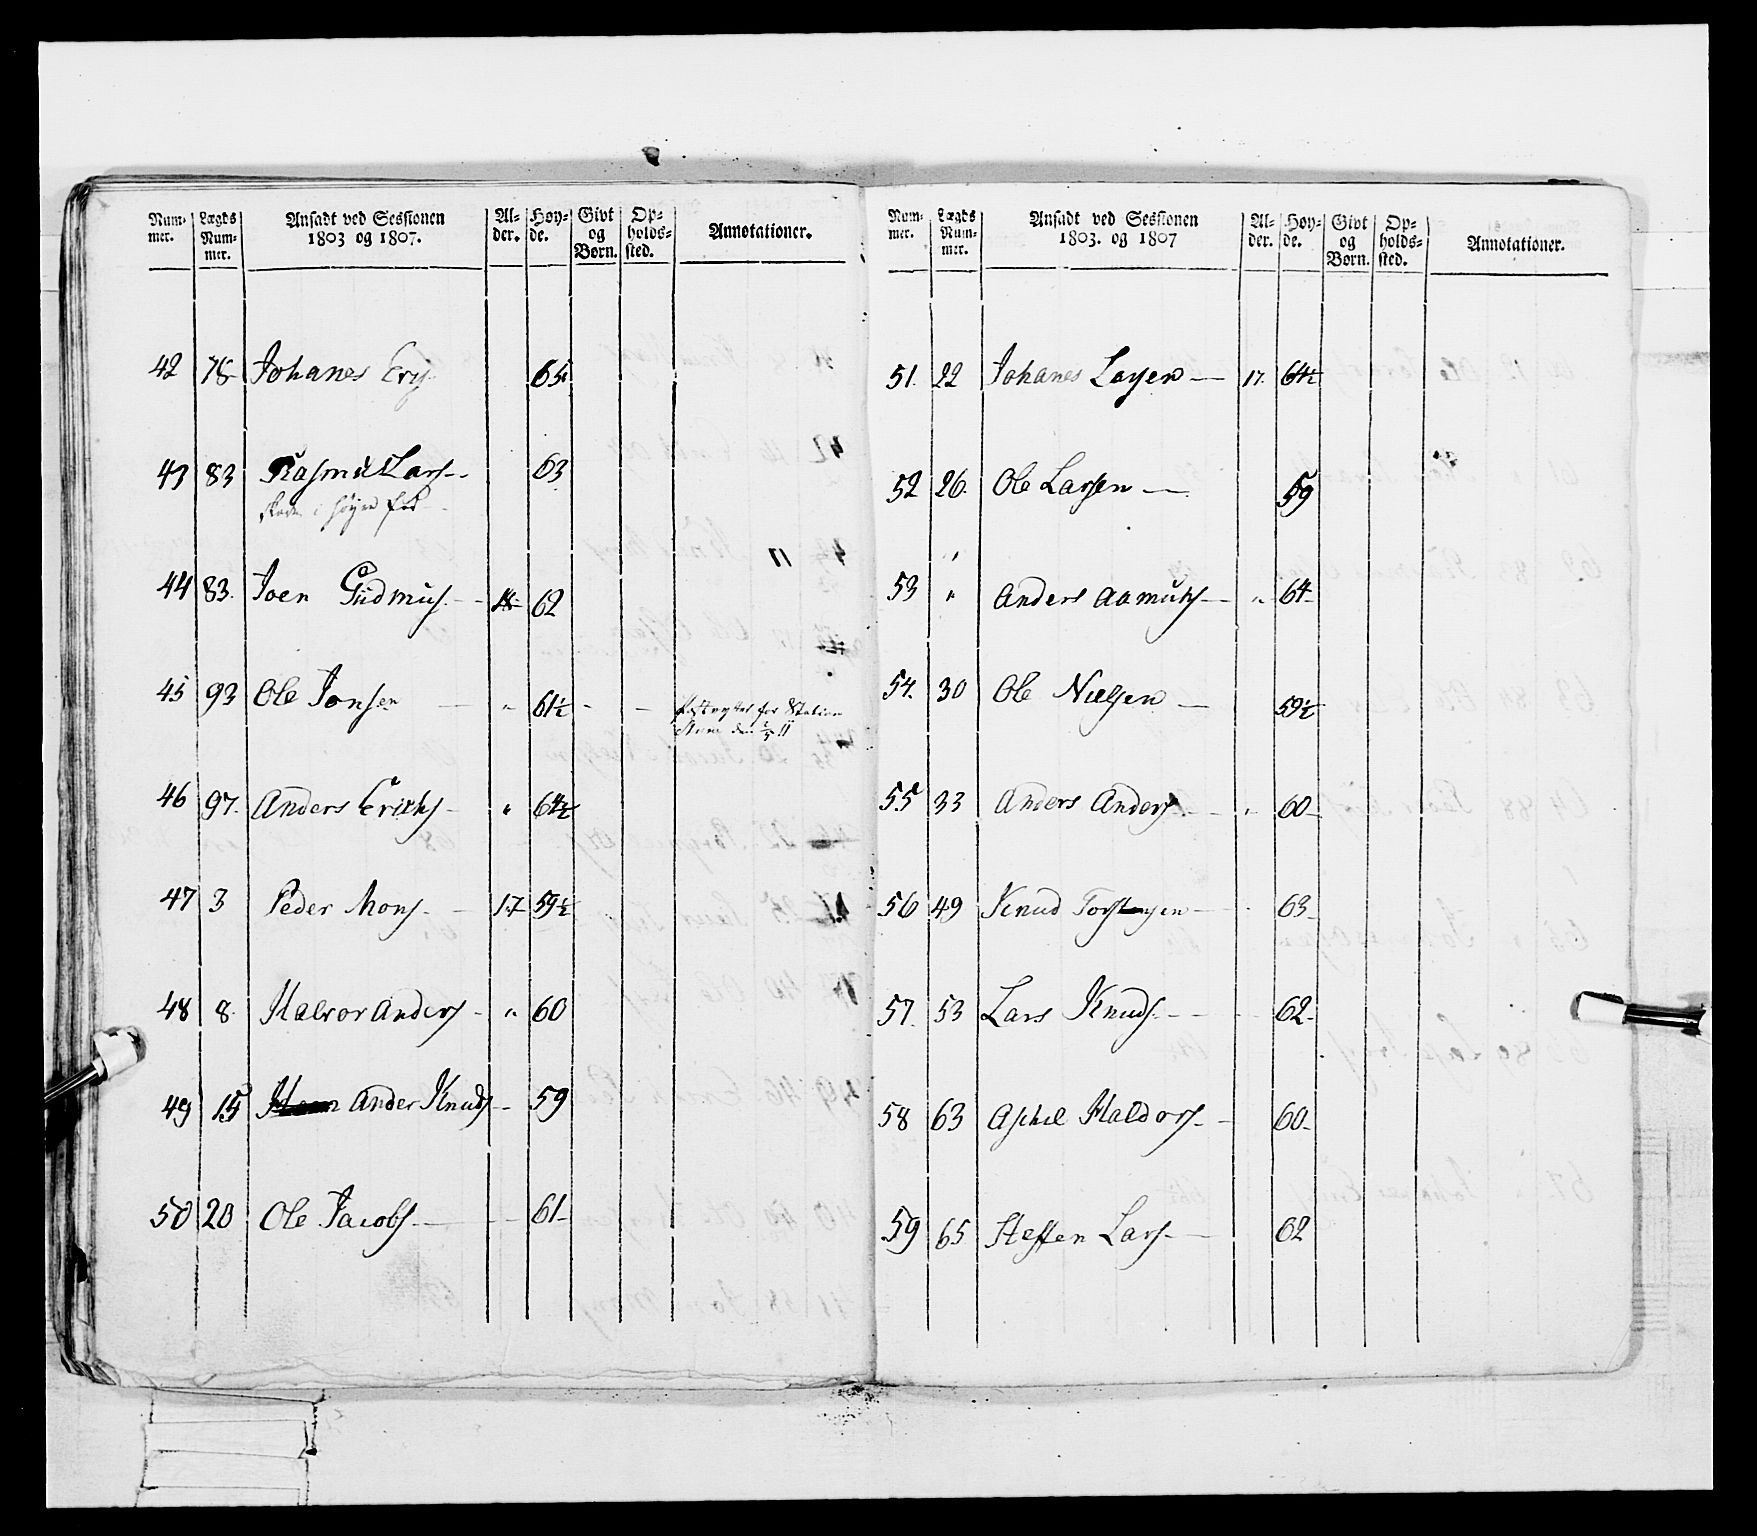 Num-mer. Lægds Num-mer. Ansadt ved Sessionen 1803 og 1807. Al-der. Høy-de. Givt og Børn. Op-holds-sted. Annotationer.
42 78 Johanes Erigs 65
43 83 Rasmus Lars. 63
i høyre
44 83. Joen Gudmus. 62
45 93 Ole Jonsen " 61½
for Station
46 97. Anders Erichs " 64½
47 3 Peder Mons. 17 59½
48 8. Halvor Anders " 60
49 15 Ander Knuds 59
50 20 Ole Jacobs. 61
Num-mer. Lægds Num-mer. Ansadt ved Sessionen 1803. og 1807 Al-der. Høy-de. Givt og Børn. Op-holds-sted. Annotationer.
51. 22 Johanes Larsen 17. 64½
52 26. Ole Larsen 59
53 " Anders Aamunds " 64
54. 30 Ole Nielsen 59½
55 33 Anders Anders " 60
56 49 Knud Torstensen 63
57. 53 Lars Knuds. 62
58 63 Aschel Haldors. 60
59 65 Steffen Lars. 62